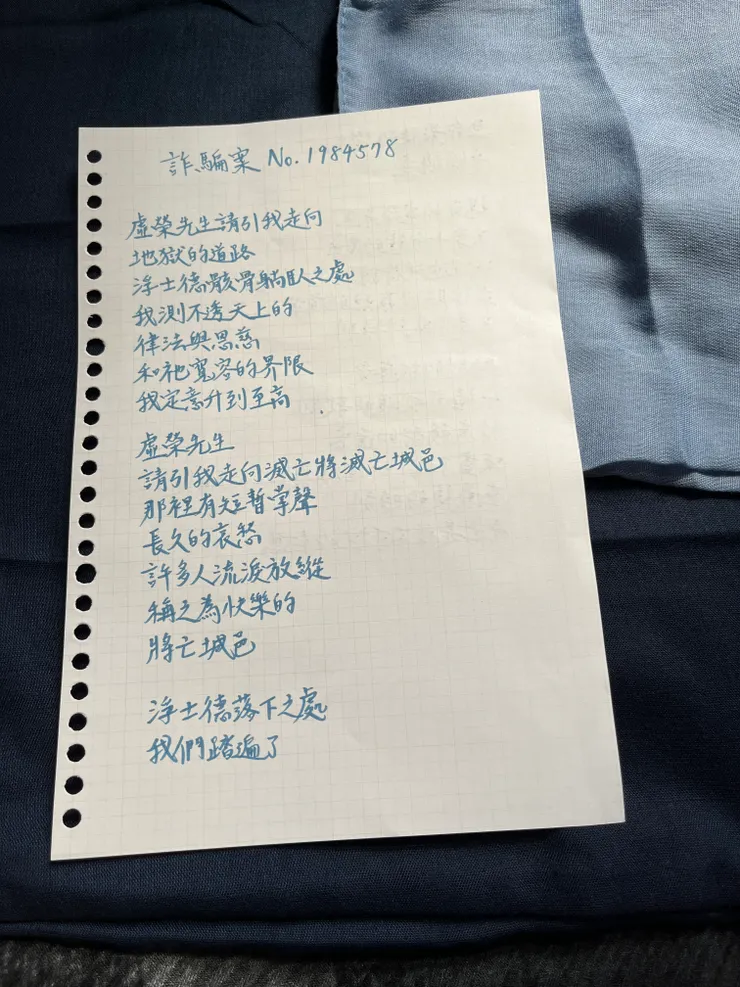 詐騙案 No. 1984578
虛榮先生請引我走向
地獄的道路
浮士德骸骨躺臥之處
我測不透天上的
律法與恩慈
和祂寬容的界限
我定意升到至高
虛榮先生
請引我走向滅亡將滅亡城邑
那裡有短暫掌聲
長久的哀愁
許多人流淚放縱
稱之為快樂的
將亡城邑
浮士德落下之處
我們踏遍了